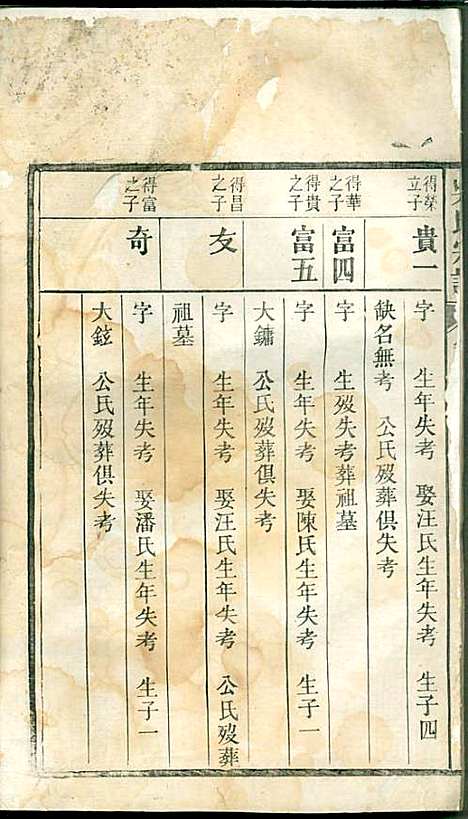 得榮立子
貴一
字 生年失考 娶汪氏生年失考 生子四
缺名無考 公氏歿葬俱失考
得華之子
富四
字 生歿失考葬祖墓
得貴之子
富五
字 生年失考 娶陳氏生年失考 生子一
大鏞 公氏歿葬俱失考
得昌之子
友
字 生年失考 娶汪氏生年失考 公氏歿葬
祖墓
得富之子
奇
字 生年失考 娶潘氏生年失考 生子一
大鉉 公氏歿葬俱失考